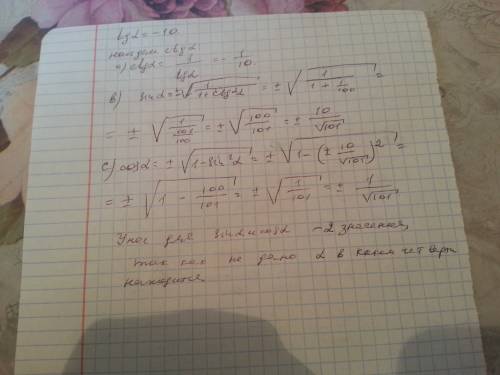 tgα = -10.
найдем ctgα
a) ctgα = 1/tgα = - 1/10.
в) sinα = ±√(1/(1+ctg²α)) = ±√(1/(1+1/100)) =
= ±√(1/(101/100)) = ±√(100/101) = ± 10/√101
c) cosα = ±√(1-sin²α) = ±√(1-(± 10/√101)²) =
= ±√(1 - 100/101) = ±√(1/101) = ± 1/√101
У нас для sinα и cosα - 2 значения,
так как не дано α в какой четверти
находится